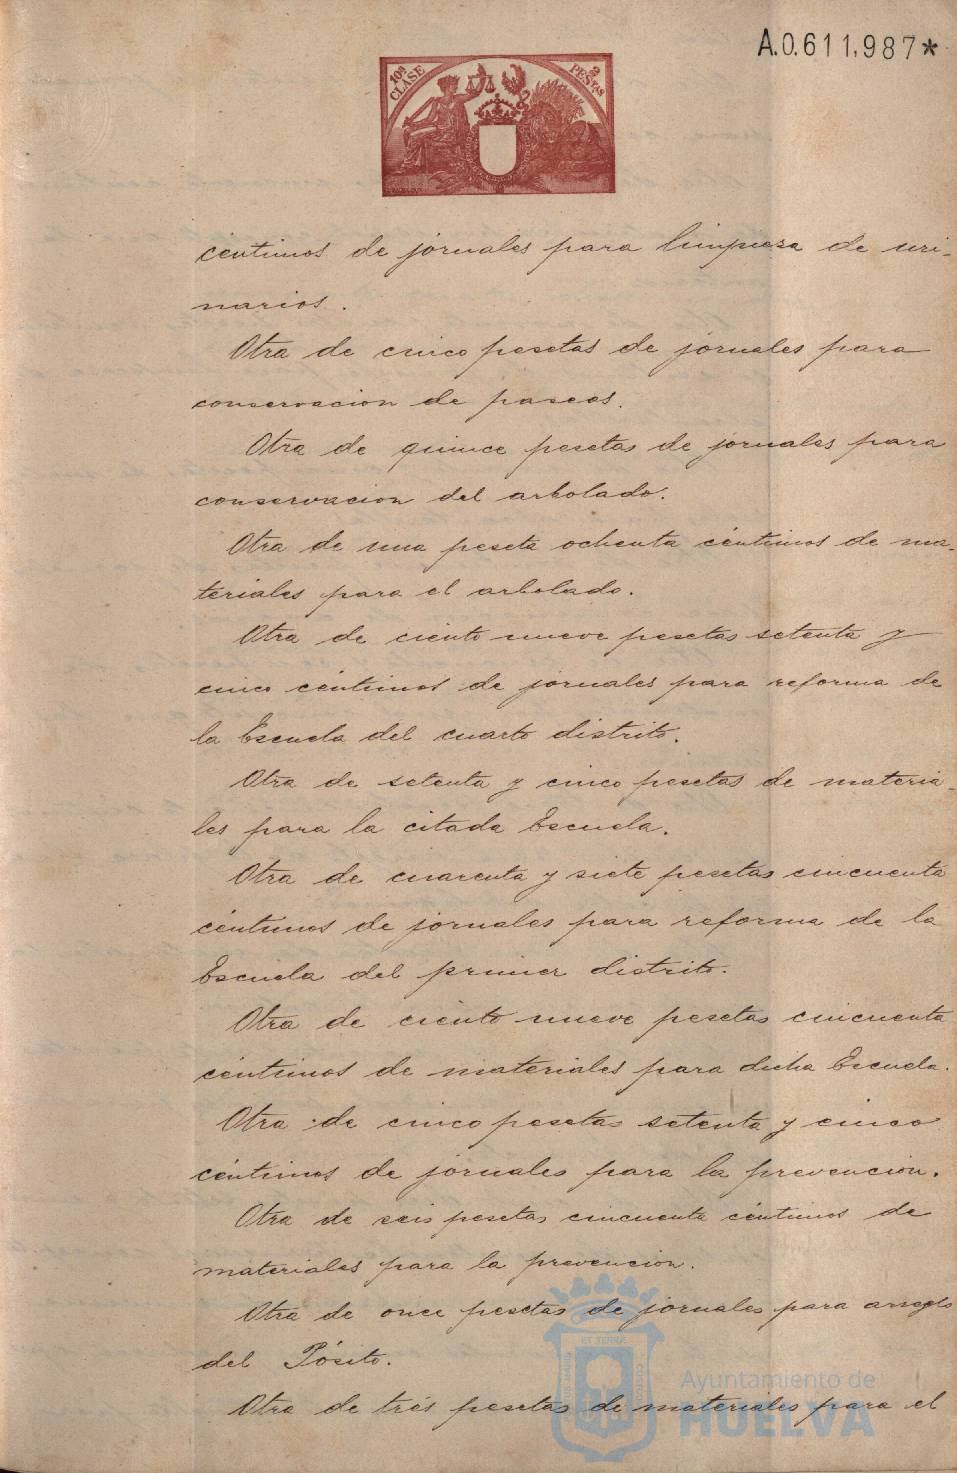 A.0.611,987*
10ª CLASE
2 PESTAS
céntimos de jornales para limpieza de uri-
narios.
Otra de cinco pesetas de jornales para
conservacion de paseos.
Otra de quince pesetas de jornales para
conservacion del arbolado.
Otra de una peseta ochenta céntimos de ma-
teriales para el arbolado.
Otra de ciento nueve pesetas setenta y
cinco céntimos de jornales para reforma de
la Escuela del cuarto distrito.
Otra de setenta y cinco pesetas de materia-
les para la citada Escuela.
Otra de cuarenta y siete pesetas cincuenta
céntimos de jornales para reforma de la
Escuela del primer distrito.
Otra de ciento nueve pesetas cincuenta
céntimos de materiales para dicha Escuela.
Otra de cinco pesetas setenta y cinco
céntimos de jornales para la prevencion.
Otra de seis pesetas cincuenta céntimos de
materiales para la prevencion.
Otra de once pesetas de jornales para arreglo
del Pósito.
Otra de tres pesetas de materiales para el
Ayuntamiento de
HUELVA